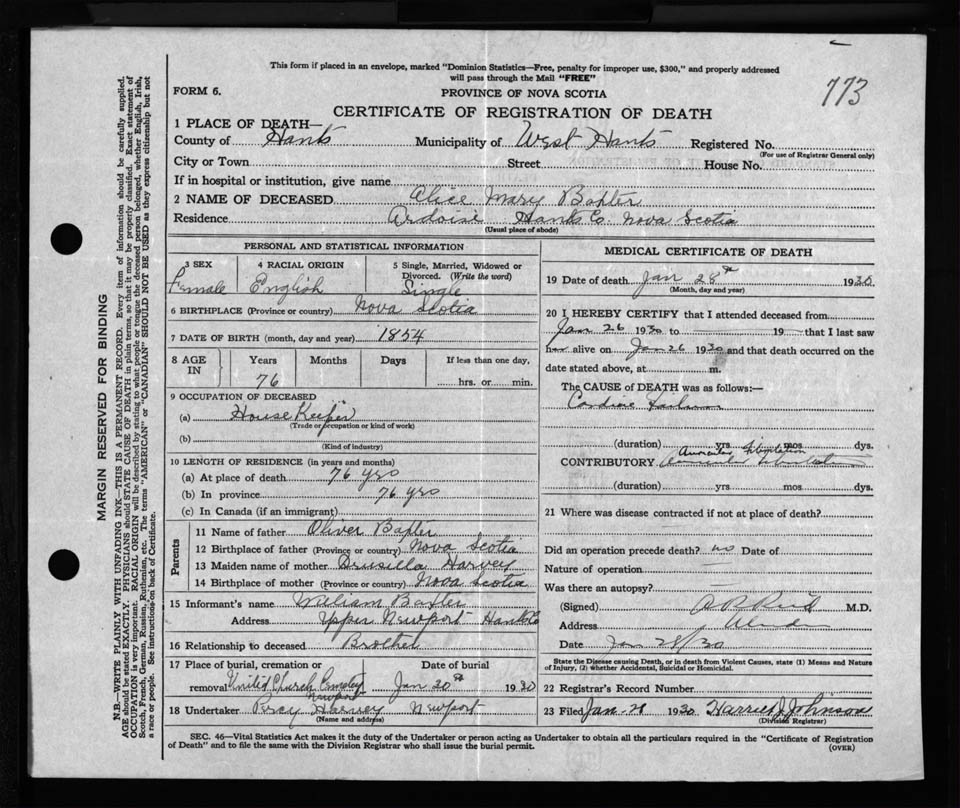 This form if placed in an envelope, marked "Dominion Statistics—Free, penalty for improper use, $300," and properly addressed
will pass through the Mail "FREE"
773
FORM 6.
PROVINCE OF NOVA SCOTIA
CERTIFICATE OF REGISTRATION OF DEATH
1 PLACE OF DEATH—
County of Hants Municipality of West Hants Registered No.
(For use of Registrar General only)
City or Town Street House No.
If in hospital or institution, give name
2 NAME OF DECEASED Alice Mary Baxter
Residence Ardoise Hants Co. Nova Scotia
(Usual place of abode)
PERSONAL AND STATISTICAL INFORMATION
3 SEX
Female
4 RACIAL ORIGIN
English
5 Single, Married, Widowed or
Divorced. (Write the word)
Single
6 BIRTHPLACE (Province or country) Nova Scotia
7 DATE OF BIRTH (month, day and year) 1854
8 AGE
IN
Years
76
Months
Days
If less than one day,
hrs. or min.
9 OCCUPATION OF DECEASED
(a) House Keeper
(Trade or occupation or kind of work)
(b)
(Kind of industry)
10 LENGTH OF RESIDENCE (in years and months)
(a) At place of death 76 yrs
(b) In province 76 yrs
(c) In Canada (if an immigrant)
Parents
11 Name of father Oliver Baxter
12 Birthplace of father (Province or country) Nova Scotia
13 Maiden name of mother Drusilla Harvey
14 Birthplace of mother (Province or country) Nova Scotia
15 Informant's name William Baxter
Address Upper Newport Hants Co
16 Relationship to deceased Brother
17 Place of burial, cremation or
removal United Church Cemetery
Newport
Date of burial
Jan 20th 1930
18 Undertaker Percy Harvey Newport
(Name and address)
MEDICAL CERTIFICATE OF DEATH
19 Date of death Jan 28th 1930
(Month, day and year)
20 I HEREBY CERTIFY that I attended deceased from
Jan 26 1930 to 19 that I last saw
her alive on Jan 26 1930 and that death occurred on the
date stated above, at m.
The CAUSE of DEATH was as follows:—
Cardiac Failure
(duration) yrs mos dys.
CONTRIBUTORY Auricular Fibrillation
(duration) yrs mos dys
21 Where was disease contracted if not at place of death?
Did an operation precede death? no Date of
Nature of operation
Was there an autopsy?
(Signed) M.D.
Address
Date Jan 28/30
State the Disease causing Death, or in death from Violent Causes, state (1) Means and Nature
of Injury, (2) whether Accidental, Suicidal or Homicidal.
22 Registrar's Record Number
23 Filed Jan 1930 Harriet J Johnson
(Division Registrar)
SEC. 46—Vital Statistics Act makes it the duty of the Undertaker or person acting as Undertaker to obtain all the particulars required in the "Certificate of Registration
of Death" and to file the same with the Division Registrar who shall issue the burial permit.
(OVER)
MARGIN RESERVED FOR BINDING
N.B.—WRITE PLAINLY WITH UNFADING INK—THIS IS A PERMANENT RECORD. Every item of information should be carefully supplied.
AGE should be stated EXACTLY. PHYSICIANS should STATE CAUSE OF DEATH in plain terms, so that it may be properly classified. Exact statement of
OCCUPATION is very important. RACIAL ORIGIN will be described by stating to what people or tongue the deceased person belonged, whether English, Irish,
Scotch, French, German, Russian, Ruthenian, etc. The terms "AMERICAN" or "CANADIAN" SHOULD NOT BE USED as they express citizenship but not
a race or people. See instructions on back of Certificate.